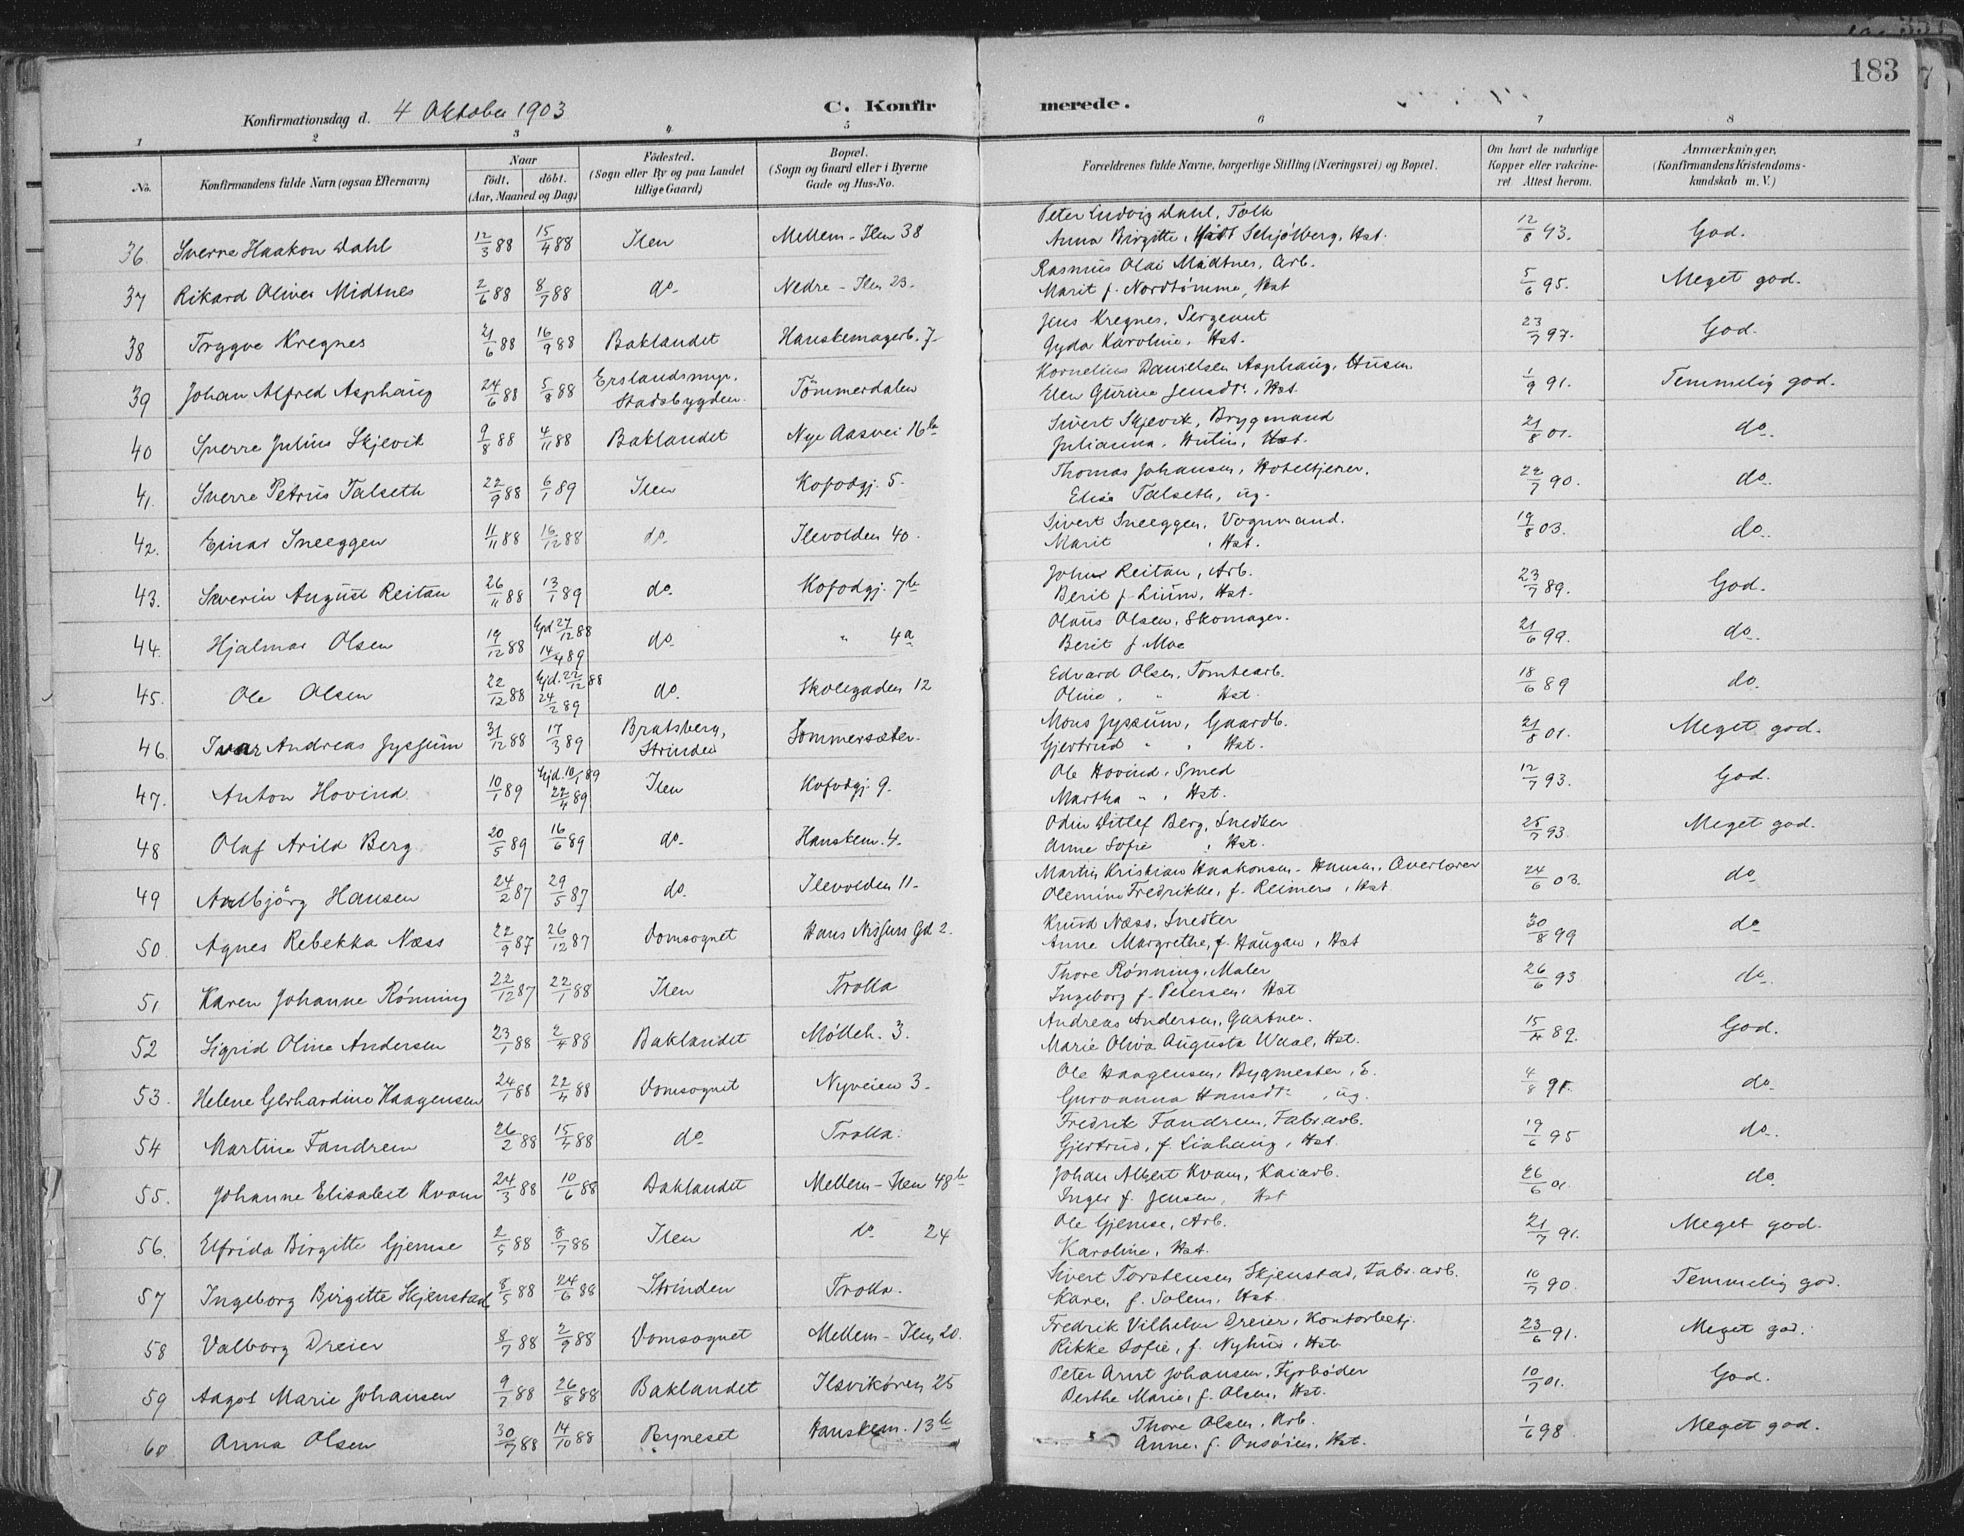 183
Konfirmationsdag d. 4 Oktober 1903
C. Konfirmerede.
1 2 3 4 5 6 7 8
No. Konfirmandens fulde Navn (ogsaa Efternavn) Naar født. døbt. (Aar, Maaned og Dag) Fødested. (Sogn eller By og paa Landet tillige Gaard) Bopæl. (Sogn og Gaard eller i Byerne Gade og Hus-No. Forældrenes fulde Navne, borgerlige Stilling (Næringsvei) og Bopæl. Om havt de naturlige Kopper eller vakcineret Attest herom. Anmærkninger, (Konfirmandens Kristendomskundskab m. V.)
36 Sverre Haakon Dahl 12/3 88 15/4 88 Ilen Mellem-Ilen 38 Peter Ludvig Dahl, Tolk
Anna Birgitte, født Schjølberg, Hst. 12/8 93. God.
37 Rikard Oliver Midtnes 2/6 88 8/7 88 do. Nedre-Ilen 23. Rasmus Olai Midtnes, Arb.
Marit f. Nordtømme, Hst 5/6 95. Meget god.
38 Trygve Kregnes 21/6 88 16/9 88 Baklandet Hanskemagerb. 7 Jens Kregnes, Sergeant
Gyda Karoline, Hst. 23/7 97. God.
39 Johan Alfred Asphaug 24/6 88 5/8 88 Erslandsmyr, Stadsbygden. Tømmerdalen Kornelius Danielsen Asphaug, Husm
Elen Gurine Jensdtr, Hst. 1/9 91. Temmelig god.
40 Sverre Julius Skjevik 9/8 88 4/11 88 Baklandet Nye Aasvei 16b Sivert Skjevik, Brygmand
Julianna, Hutin, Hst. 21/8 01. do.
41. Sverre Petrus Talseth 22/9 88 6/1 89 Ilen Kofodgj. 5. Thomas Johansen, Hoteltjener.
Elise Talseth, ug. 22/7 90. do.
42. Einar Sneeggen 11/11 88 16/12 88 do. Ilevolden 40. Sivert Sneeggen, Vognmand.
Marit , Hst. 19/8 03. do.
43. Severin August Reitan 26/11 88 13/1 89 do. Kofodgj. 7b John Reitan, Arb.
Berit f. Lium, Hst. 23/7 89. God.
44. Hjalmar Olsen 19/12 88 Hjd 27/12 88 14/4 89 do. " 4a Olaus Olsen, Skomager.
Berit f. Moe 21/6 99. do.
45. Ole Olsen 22/12 88 Hjd. 22/12 88 24/2 89 do. Skolegaden 12 Edvard Olsen, Tomtearb.
Oline, " Hst. 18/6 89 do.
46. Ivar Andreas Jyssum 31/12 88 17/3 89 Bratsberg, Strinden Sommersæter. Mons Jyssum, Gaardb.
Gjertrud " , Hst. 21/8 01. Meget god.
47. Anton Hovind 10/1 89 Hjd. 10/1 89 22/4 89 Ilen Kofodgj. 9. Ole Hovind, Smed
Martha " , Hst. 12/7 93. God.
48 Olaf Arild Berg 20/5 89 16/6 89 do. Hanskem. 4. Odin Ditlef Berg, Snedker
Anne Sofie , Hst. 25/7 93. Meget god.
49 Aulbjörg Hansen 24/2 87 29/5 87 do. Ilevolden 11. Martin Kristian Haakonsen-Hansen, Overlærer
Olemine Fredrikke, f. Reimers, Hst 24/6 03. do.
50. Agnes Rebekka Næss 22/9 87 26/12 87 Domsognet Hans Nissens Gd 2. Knud Næss, Snedker
Anne Margrethe, f. Haugan, Hst 30/8 99 do
51 Karen Johanne Rönning 22/12 87 22/1 88 Ilen Trolla Thore Rönning, Maler
Ingeborg f. Petersen, Hst 26/6 93 do.
52 Sigrid Oline Andersen 23/1 88 2/4 88 Baklandet Mölleb. 3. Andreas Andersen, Gartner.
Marie Oliva Augusta Waal, Hst. 15/4 89. God.
53. Helene Gerhardine Haagensen 24/1 88 22/4 88 Domsognet Nyveien 3. Ole Haagensen, Bygmester, E.
Gurvanna Hansdtr , ug. 4/8 91. do.
54 Martine Fandrem 26/2 88 15/4 88 do Trolla. Fredrik Fandrem, Fabr.arb.
Gjertrud, f. Liahaug, Hst. 19/6 95 do.
55. Johanne Elisabet Kvam 24/3 88 10/6 88 Baklandet Mellem-Ilen 48b Johan Albert Kvam, Kaiarb.
Inger f. Jensen, Hst 26/6 01. do
56. Elfrida Birgitte Gjemse 2/5 88 8/7 88 Ilen do 24 Ole Gjemse, Arb.
Karoline, Hst. 21/7 91. Meget god.
57 Ingeborg Birgitte Skjenstad 8/5 88 24/6 88 Strinden Trolla. Sivert Torstensen Skjenstad, Fabr.arb.
Karen f. Solem, Hst. 10/7 90. Temmelig god.
58 Valborg Dreier 8/7 88 2/9 88 Domsognet Mellem-Ilen 20. Fredrik Vilhelm Dreier, Kontorbetj.
Rikke Sofie, f. Nyhus, Hst. 23/6 91. Meget god.
59 Aagot Marie Johansen 9/7 88 26/8 88 Baklandet Ilsvikøren 25 Peter Arnt Johansen, Fyrbøder
Berthe Marie, f. Olsen, Hst. 10/7 01. God.
60 Anna Olsen 30/7 88 14/10 88 Byneset Hanskem. 13b Thore Olsen, Arb.
Anne, f. Onsöien, Hst. 1/6 98 Meget god.